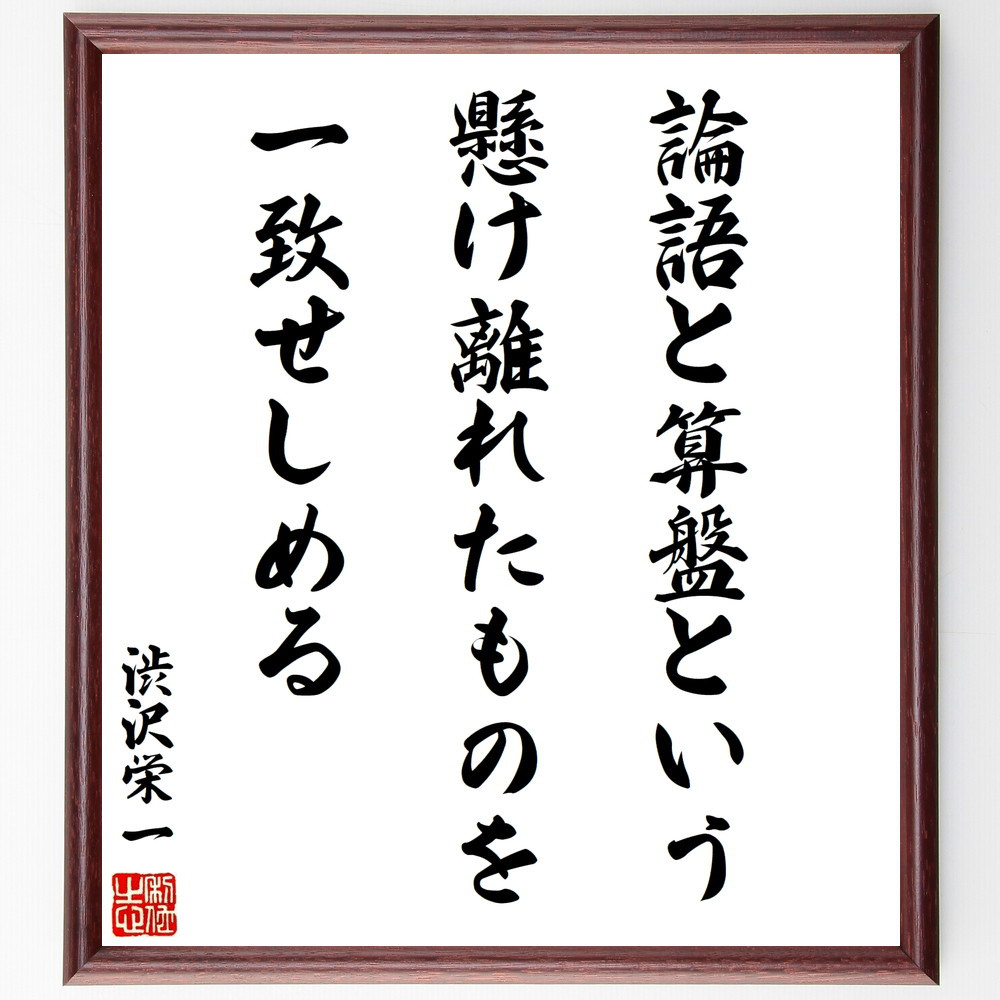 論語と算盤という
懸け離れたものを
一致せしめる
渋沢栄一